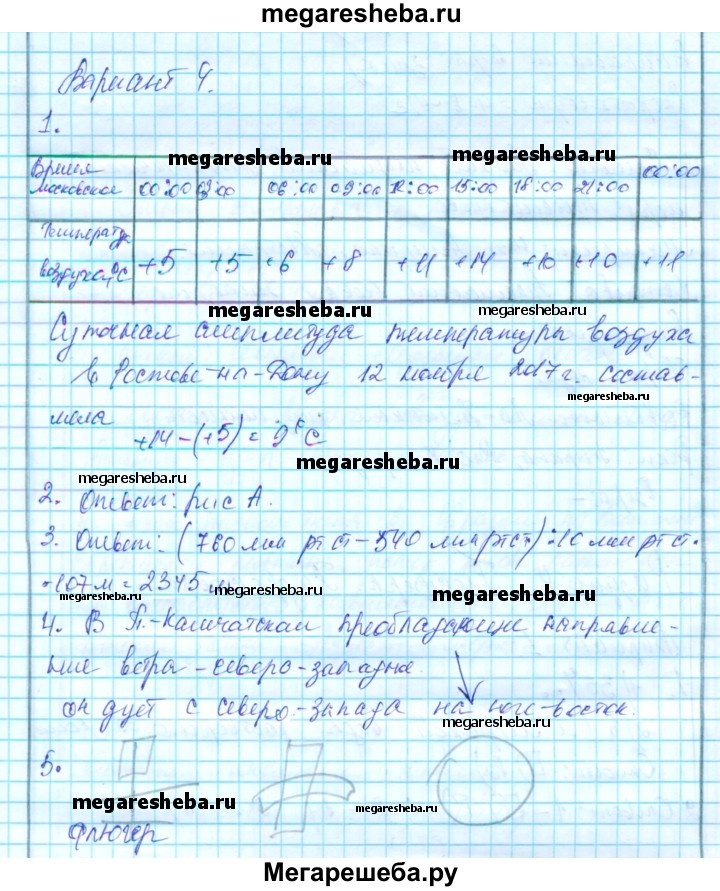 megaresheba.ru
megaresheba.ru
Вариант 4.
1.
megaresheba.ru megaresheba.ru
Время московское 00:00 03:00 06:00 09:00 12:00 15:00 18:00 21:00 00:00
Температура воздуха, °C +5 +5 +6 +8 +11 +14 +10 +10 +11
megaresheba.ru megaresheba.ru
Суточная амплитуда температуры воздуха
в Ростове-на-Дону 12 ноября 2017 г. состав-
megaresheba.ru
ляла +14-(+5) = 9°C
megaresheba.ru
megaresheba.ru
2. Ответ: рис А.
3. Ответ: (760 мм рт ст - 540 мм рт ст) : 10 мм рт ст.
·107 м = 2345 м
megaresheba.ru megaresheba.ru megaresheba.ru
4. В П.-Камчатском преобладающее направле-
ние ветра - северо-западное.
он дует с северо-запада на юго-восток.
megaresheba.ru
5.
megaresheba.ru megaresheba.ru
флюгер
Мегарешеба.ру